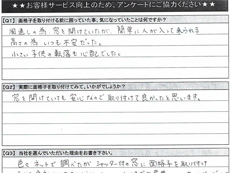 ★★お客様サービス向上のため、アンケートにご協力ください★★
【Q1】面格子を取り付ける前に困っていた事、気になっていたことは何ですか?
風通しの為、窓を開けていたが、簡単に人が入って来られる
高さの為、いつも不安だった。
小さい子供の転落も心配でした。
【Q2】実際に面格子を取り付けてみて、いかがでしょうか?
窓を開けていても安心なので取り付けて良かったと思います。
【Q3】当社を選んでいただいた理由をお書き下さい。
色々ネットで調べたが、シャッター付の窓に面格子を取り付け